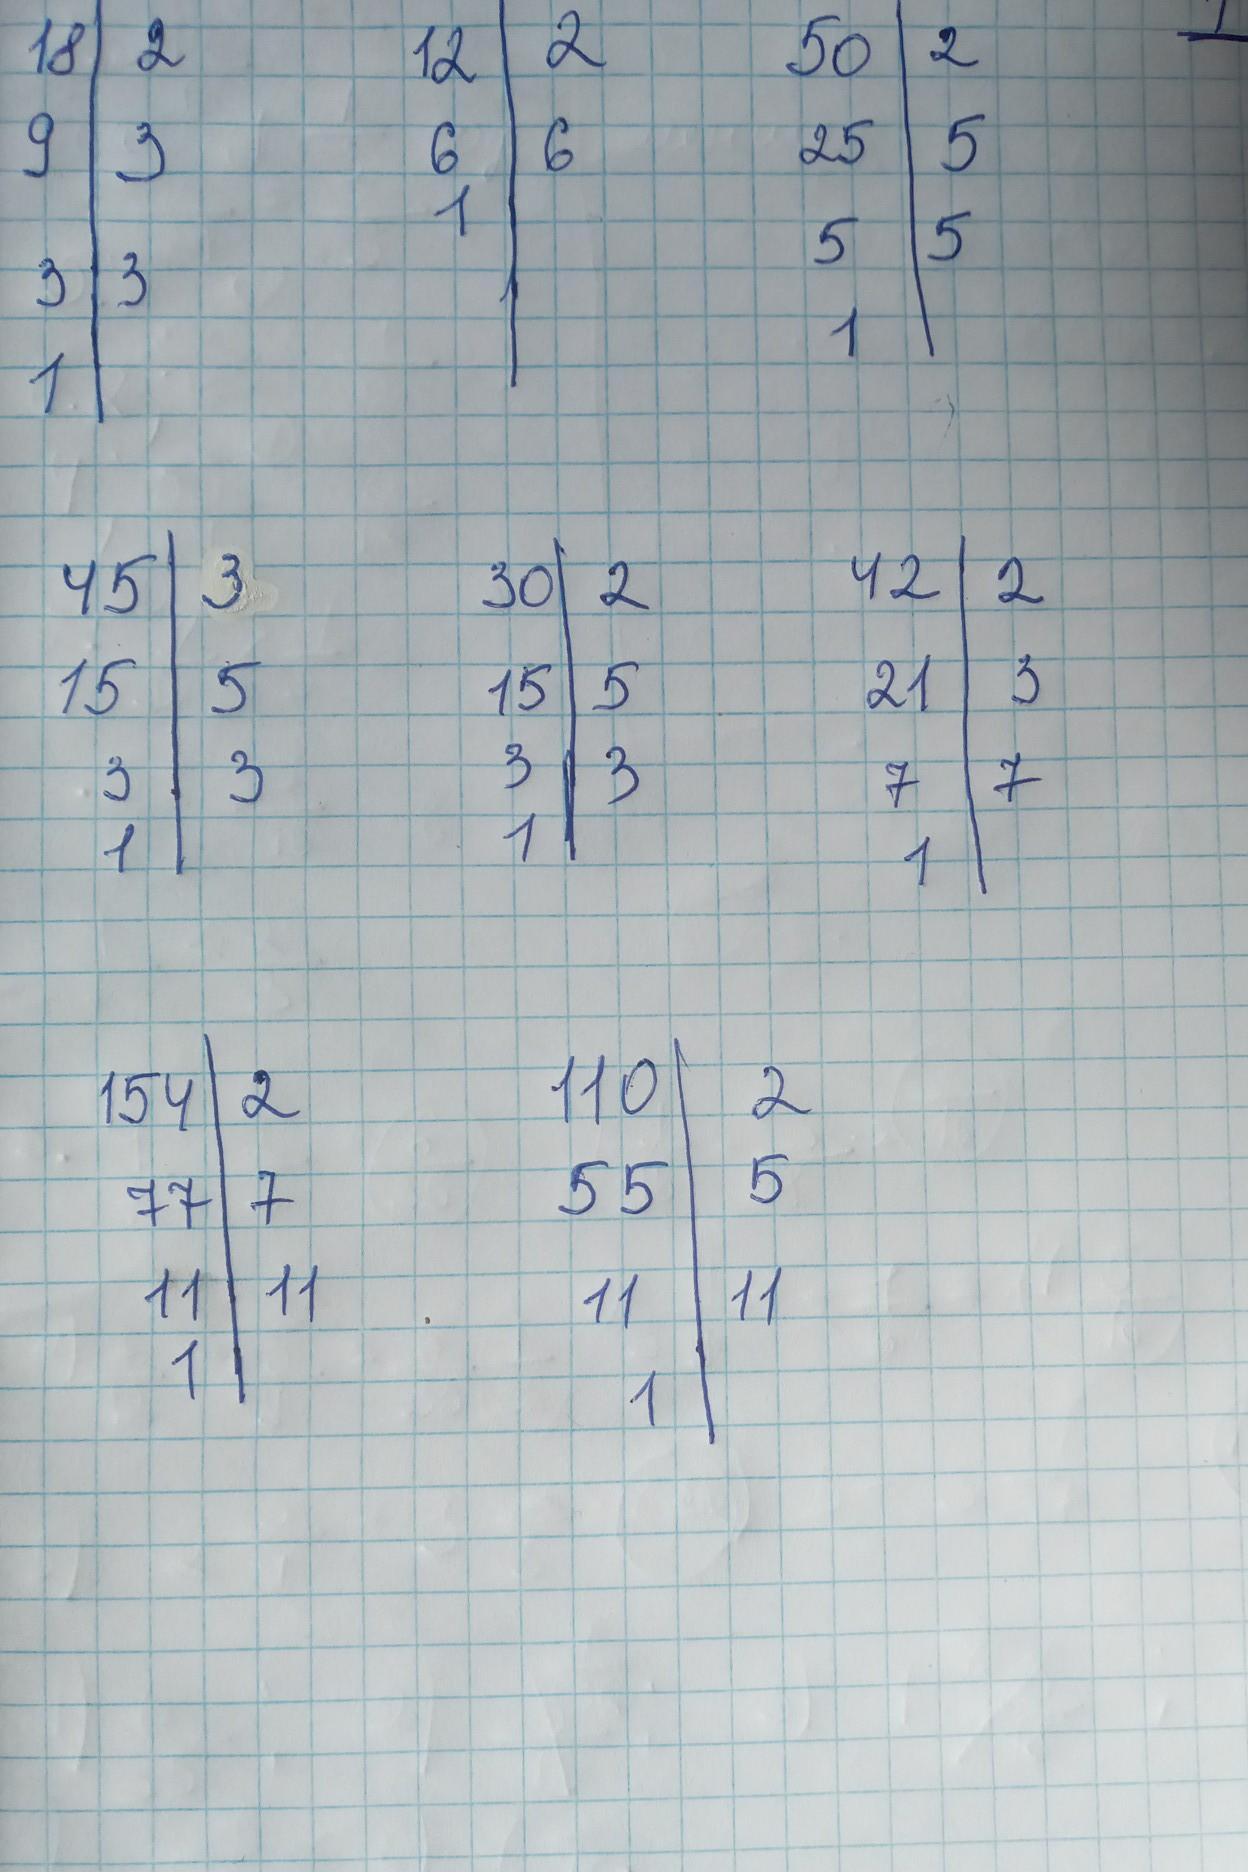 18 | 2
9 | 3
3 | 3
1
12 | 2
6 | 6
1
50 | 2
25 | 5
5 | 5
1
45 | 3
15 | 5
3 | 3
1
30 | 2
15 | 5
3 | 3
1
42 | 2
21 | 3
7 | 7
1
154 | 2
77 | 7
11 | 11
1
110 | 2
55 | 5
11 | 11
1